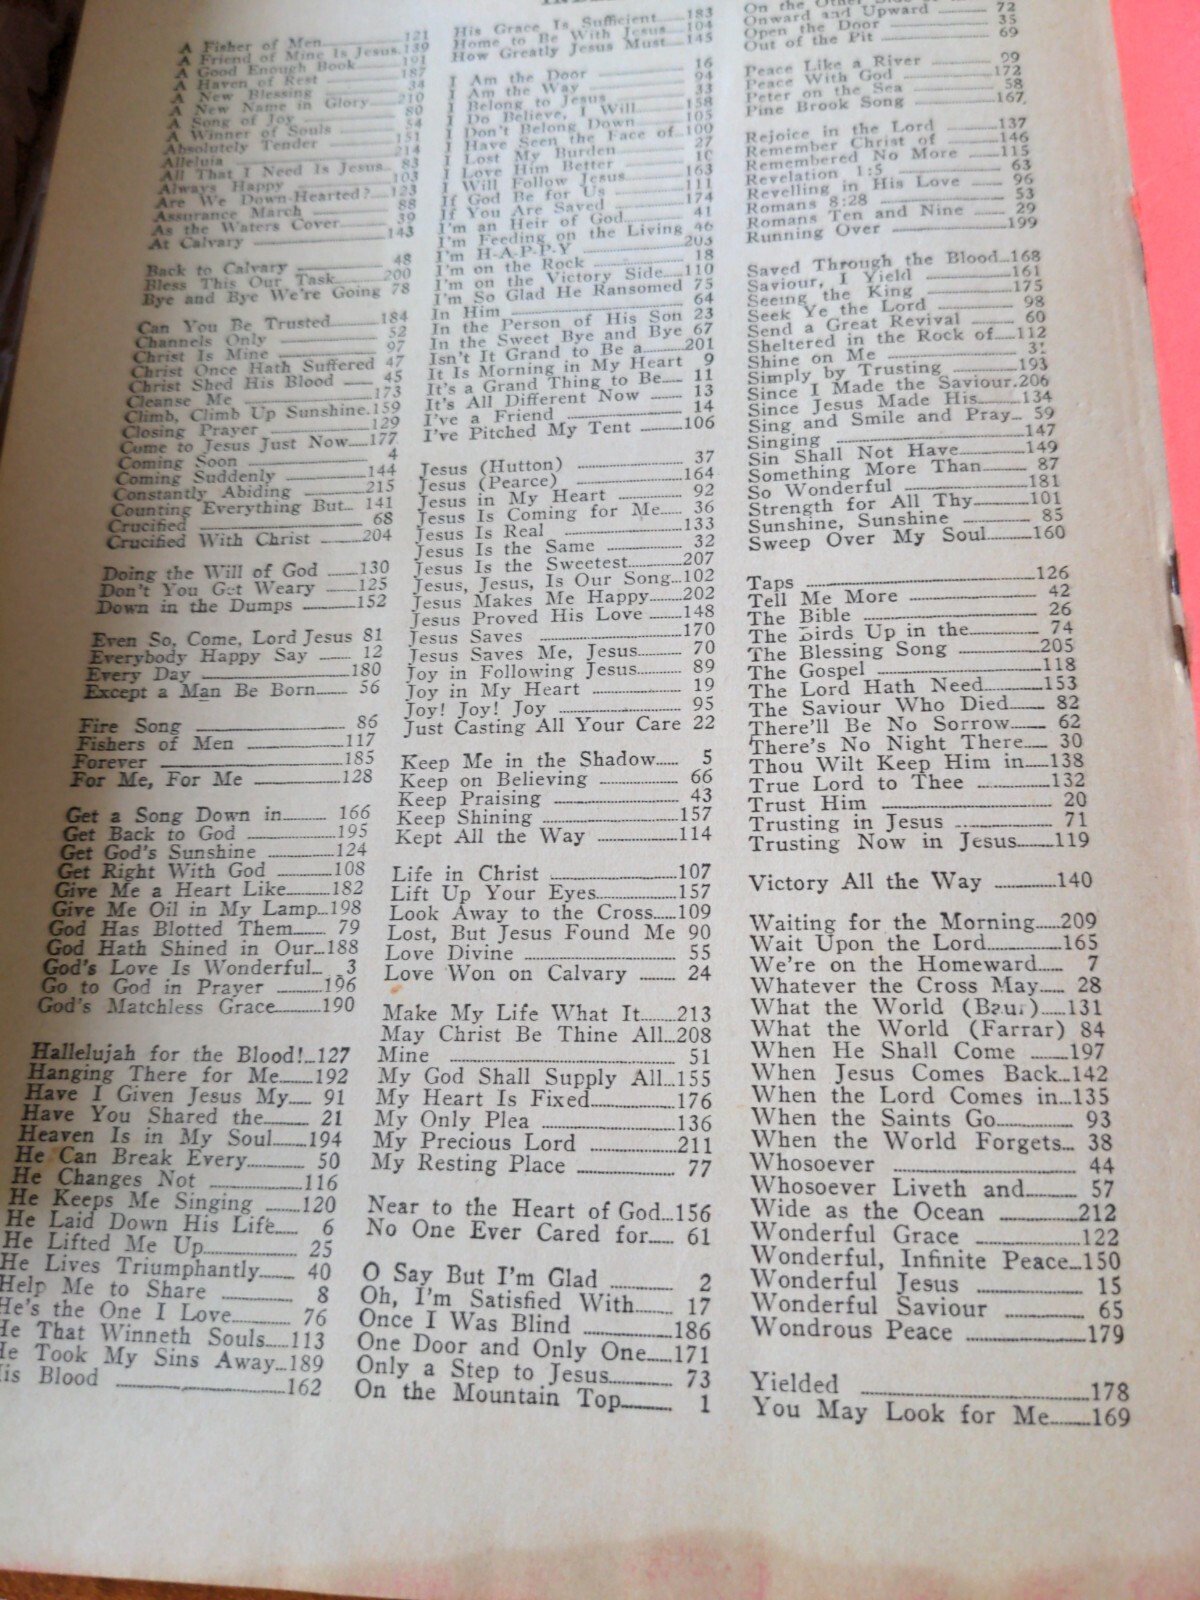 A Fisher of Men 121
A Friend of Mine Is Jesus. 139
A Good Enough Book 191
A Haven of Rest 187
A New Blessing 34
A New Name in Glory 210
A Song of Joy 80
A Winner of Souls 54
Absolutely Tender 151
Alleluia 214
All That I Need Is Jesus 83
Always Happy 103
Are We Down-Hearted? 123
Assurance March 88
As the Waters Cover 39
At Calvary 143
Back to Calvary 48
Bless This Our Task 200
Bye and Bye We're Going 78
Can You Be Trusted 184
Channels Only 52
Christ Is Mine 97
Christ Once Hath Suffered 47
Christ Shed His Blood 45
Cleanse Me 173
Climb, Climb Up Sunshine. 159
Closing Prayer 129
Come to Jesus Just Now 177
Coming Soon 4
Coming Suddenly 144
Constantly Abiding 215
Counting Everything But 141
Crucified 68
Crucified With Christ 204
Doing the Will of God 130
Don't You Get Weary 125
Down in the Dumps 152
Even So, Come, Lord Jesus 81
Everybody Happy Say 12
Every Day 180
Except a Man Be Born 56
Fire Song 86
Fishers of Men 117
Forever 185
For Me, For Me 128
Get a Song Down in 166
Get Back to God 195
Get God's Sunshine 124
Get Right With God 108
Give Me a Heart Like 182
Give Me Oil in My Lamp 198
God Has Blotted Them 79
God Hath Shined in Our 188
God's Love Is Wonderful 3
Go to God in Prayer 196
God's Matchless Grace 190
Hallelujah for the Blood! 127
Hanging There for Me 192
Have I Given Jesus My 91
Have You Shared the 21
Heaven Is in My Soul 194
He Can Break Every 50
He Changes Not 116
He Keeps Me Singing 120
He Laid Down His Life 6
He Lifted Me Up 25
He Lives Triumphantly 40
Help Me to Share 8
He's the One I Love 76
He That Winneth Souls 113
He Took My Sins Away 189
is Blood 162
His Grace Is Sufficient 183
Home to Be With Jesus 104
How Greatly Jesus Must 145
I Am the Door 16
I Am the Way 94
I Belong to Jesus 33
I Do Believe, I Will 158
I Don't Belong Down 105
I Have Seen the Face of 100
I Lost My Burden 27
I Love Him Better 10
I Will Follow Jesus 163
If God Be for Us 111
If You Are Saved 174
I'm an Heir of God 41
I'm Feeding on the Living 46
I'm H-A-P-P-Y 203
I'm on the Rock 18
I'm on the Victory Side 110
I'm So Glad He Ransomed 75
In Him 64
In the Person of His Son 23
In the Sweet Bye and Bye 67
Isn't It Grand to Be a 201
It Is Morning in My Heart 9
It's a Grand Thing to Be 11
It's All Different Now 13
I've a Friend 14
I've Pitched My Tent 106
Jesus (Hutton) 37
Jesus (Pearce) 164
Jesus in My Heart 92
Jesus Is Coming for Me 36
Jesus Is Real 133
Jesus Is the Same 32
Jesus Is the Sweetest 207
Jesus, Jesus, Is Our Song 102
Jesus Makes Me Happy 202
Jesus Proved His Love 148
Jesus Saves 170
Jesus Saves Me, Jesus 70
Joy in Following Jesus 89
Joy in My Heart 19
Joy! Joy! Joy 95
Just Casting All Your Care 22
Keep Me in the Shadow 5
Keep on Believing 66
Keep Praising 43
Keep Shining 157
Kept All the Way 114
Life in Christ 107
Lift Up Your Eyes 157
Look Away to the Cross 109
Lost, But Jesus Found Me 90
Love Divine 55
Love Won on Calvary 24
Make My Life What It 213
May Christ Be Thine All 208
Mine 51
My God Shall Supply All 155
My Heart Is Fixed 176
My Only Plea 136
My Precious Lord 211
My Resting Place 77
Near to the Heart of God 156
No One Ever Cared for 61
O Say But I'm Glad 2
Oh, I'm Satisfied With 17
Once I Was Blind 186
One Door and Only One 171
Only a Step to Jesus 73
On the Mountain Top 1
On the Other Side of
Onward and Upward 72
Open the Door 35
Out of the Pit 69
Peace Like a River 99
Peace With God 172
Peter on the Sea 58
Pine Brook Song 167
Rejoice in the Lord 137
Remember Christ of 146
Remembered No More 115
Revelation 1:5 63
Revelling in His Love 96
Romans 8:28 53
Romans Ten and Nine 29
Running Over 199
Saved Through the Blood 168
Saviour, I Yield 161
Seeing the King 175
Seek Ye the Lord 98
Send a Great Revival 60
Sheltered in the Rock of 112
Shine on Me 31
Simply by Trusting 193
Since I Made the Saviour. 206
Since Jesus Made His 134
Sing and Smile and Pray 59
Singing 147
Sin Shall Not Have 149
Something More Than 87
So Wonderful 181
Strength for All Thy 101
Sunshine, Sunshine 85
Sweep Over My Soul 160
Taps 126
Tell Me More 42
The Bible 26
The Birds Up in the 74
The Blessing Song 205
The Gospel 118
The Lord Hath Need 153
The Saviour Who Died 82
There'll Be No Sorrow 62
There's No Night There 30
Thou Wilt Keep Him in 138
True Lord to Thee 132
Trust Him 20
Trusting in Jesus 71
Trusting Now in Jesus 119
Victory All the Way 140
Waiting for the Morning 209
Wait Upon the Lord 165
We're on the Homeward 7
Whatever the Cross May 28
What the World (Baur) 131
What the World (Farrar) 84
When He Shall Come 197
When Jesus Comes Back 142
When the Lord Comes in 135
When the Saints Go 93
When the World Forgets 38
Whosoever 44
Whosoever Liveth and 57
Wide as the Ocean 212
Wonderful Grace 122
Wonderful, Infinite Peace 150
Wonderful Jesus 15
Wonderful Saviour 65
Wondrous Peace 179
Yielded 178
You May Look for Me 169